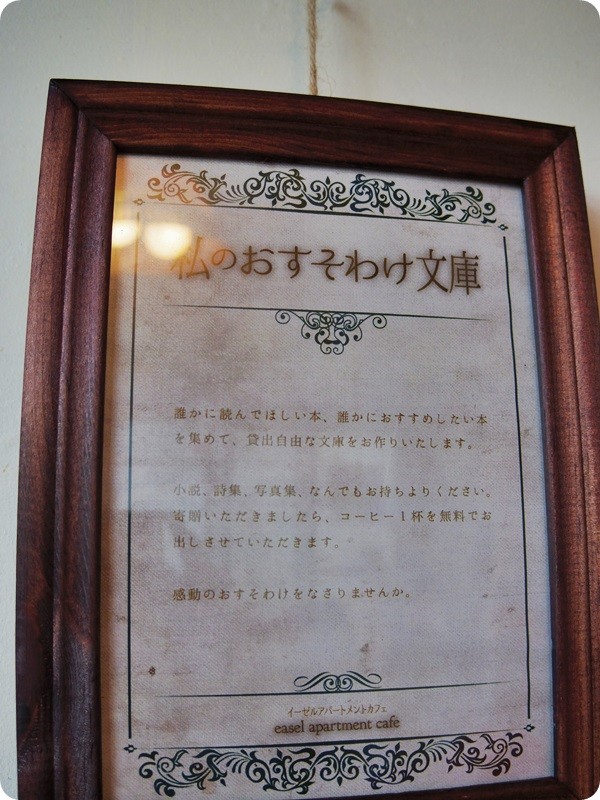 私のおすそわけ文庫
誰かに読んでほしい本、誰かにおすすめしたい本
を集めて、貸出自由な文庫をお作りいたします。
小説、詩集、写真集、なんでもお持ちよりください。
寄贈いただきましたら、コーヒー1杯を無料でお
出しさせていただきます。
感動のおすそわけをなさりませんか。
イーゼルアパートメントカフェ
easel apartment cafe